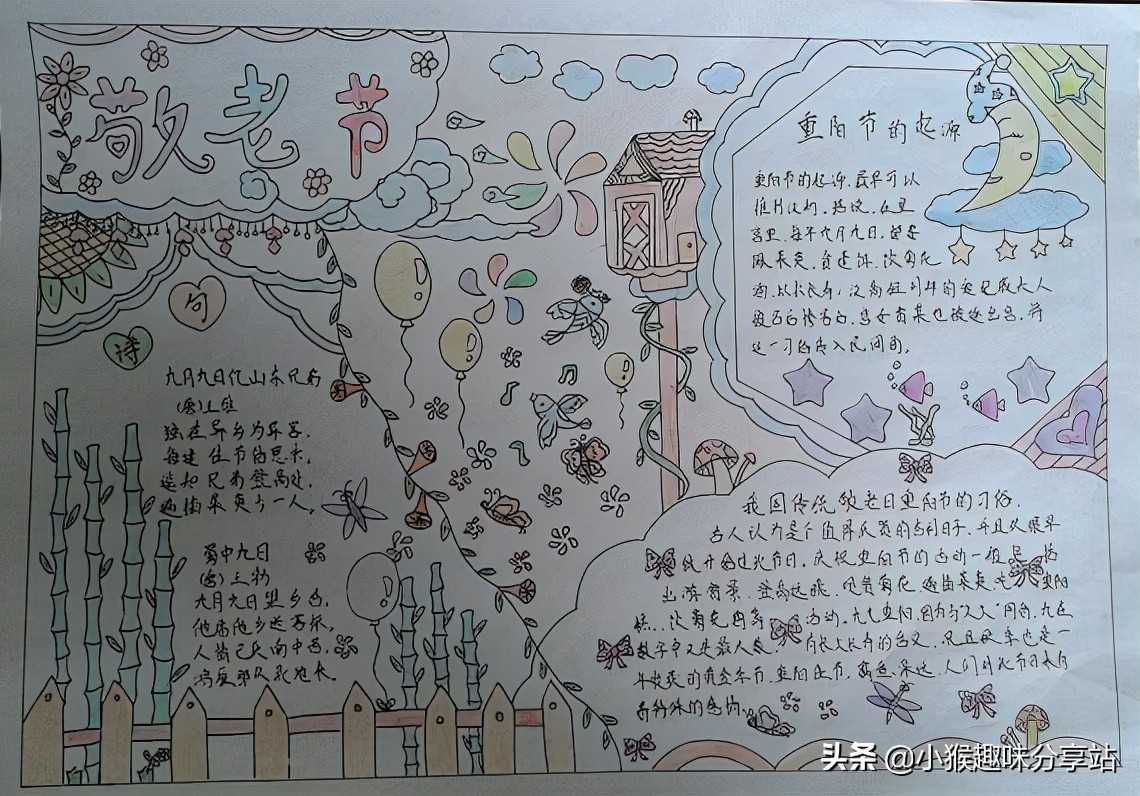 敬老节
诗
句
九月九日忆山东兄弟
(唐)王维
独在异乡为异客,
每逢佳节倍思亲,
遥知兄弟登高处,
遍插茱萸少一人。
蜀中九日
(唐)王勃
九月九日望乡台,
他席他乡送客杯,
人
鸿雁那从北地来。
重阳节的起源
重阳节的起源,最早可以
推到汉初,据说,在皇
宫里,每年九月九日,都要
佩茱萸,食蓬饵,饮菊花
酒,以求长寿,汉高祖刘邦的爱妃戚夫人
被吕后惨害后,宫女贾某也被逐出宫,将
这一习俗传入民间的。
我国传统敬老日重阳节的习俗.
古人认为是个值得庆贺的吉利日子,并且从很早
就开始过此节日,庆祝重阳节的活动一般包括
出游赏景、登高远眺、观赏菊花、遍插茱萸、吃重阳
糕、饮菊花酒等活动。九九重阳,因为与"久久"同音,九在
数字中又是最大数,有长久长寿的含义,况且秋季也是一
年收获的黄金季节,重阳佳节,寓意深远,人们对此节日
有特殊的感情
头条 @小猴趣味分享站